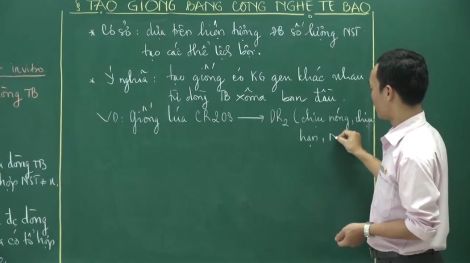 TẠO GIỐNG BẰNG CÔNG NGHỆ TẾ BÀO
* Cơ sở: dựa trên hiện tượng ĐB số lượng NST
tạo các thể lệch bội.
* Ý nghĩa: tạo giống có KG gen khác nhau
từ dòng TB xôma ban đầu.
VD: Giống lúa CR203 → DR2 (chịu nóng, chịu
hạn,
in vitro
dòng TB
dòng TB
hợp NST ≠ n.
đc dòng
có tổ hợp